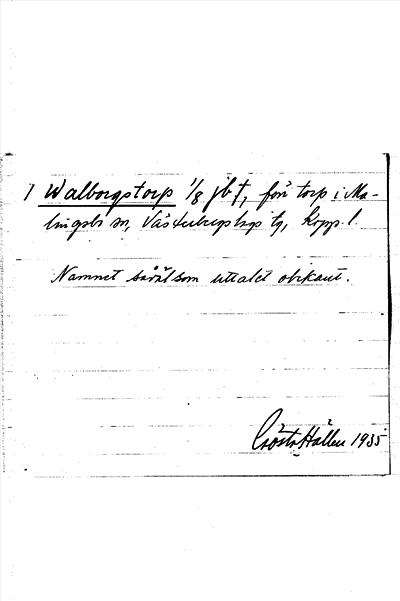 1 Walborgstorp 1/8 jb †, förr torp i Ma-
lingsbo sn, Västerbergslags tg, Kopp. l.
Namnet såväl som uttalet obekant.
Gösta Hallen 1935